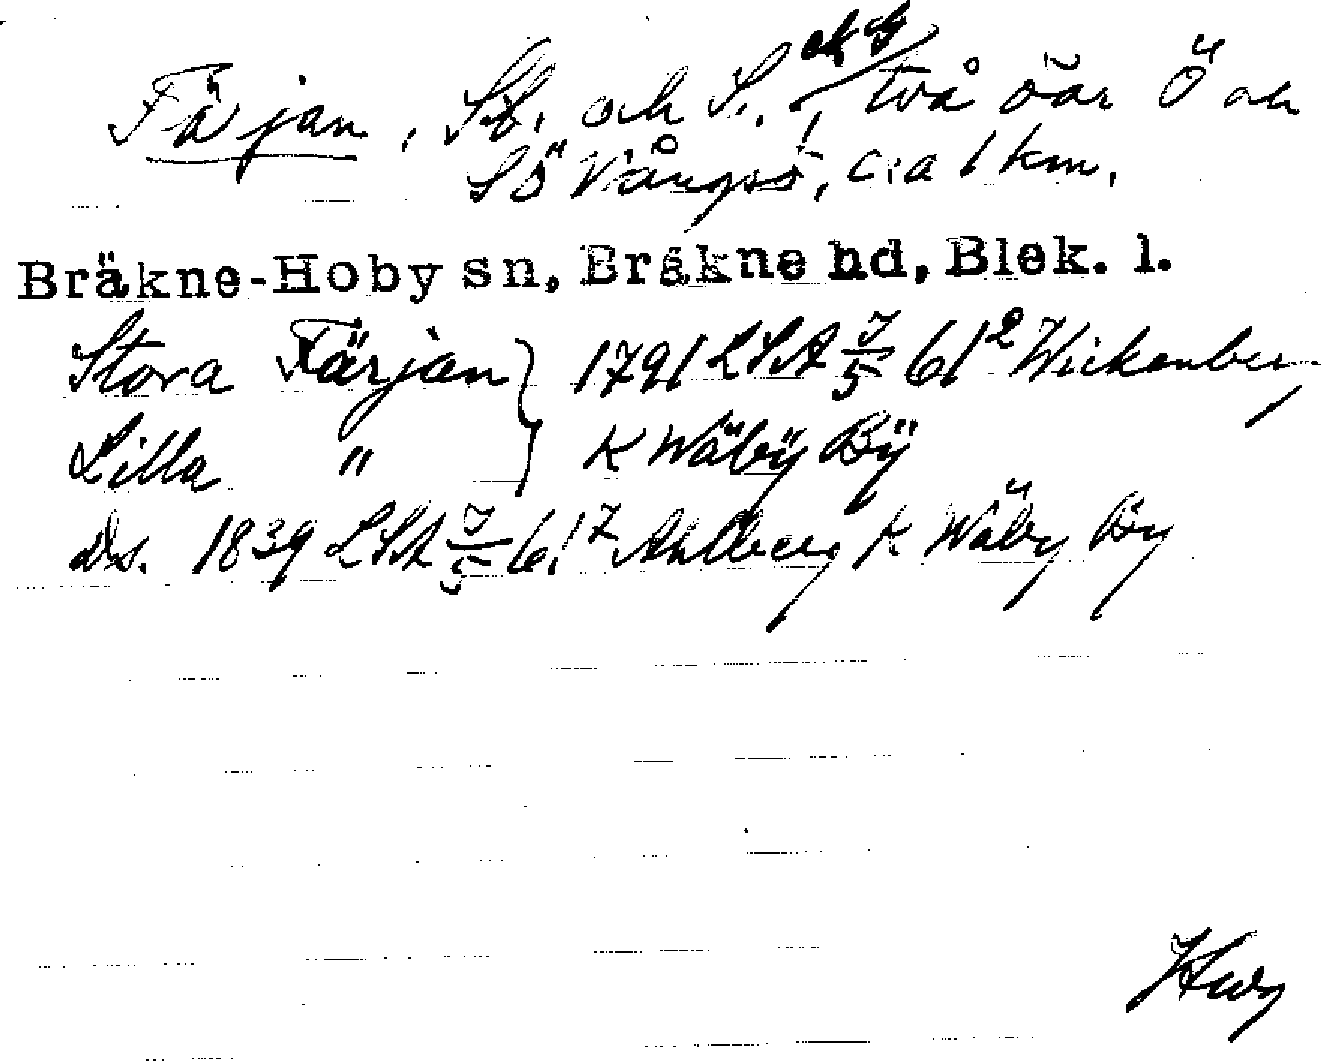 Färjan, St. och L., ek G två öar Ö och
SÖ Vångsö, c:a 1 km.
Bräkne-Hoby sn, Bräkne hd, Blek. l.
Stora Färjan } 1791 LSA 7/5 61² Wickenberg
Lilla " } K Wäby By
Ds. 1839 LSA 7/5 61⁷ Ahlberg K Wäby By